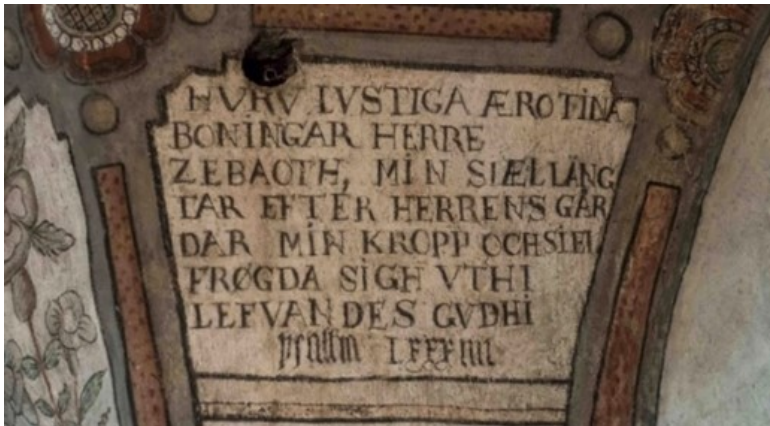 HVRV LVSTIGA ÆRO TINA
BONINGAR HERRE
ZEBAOTH, MIN SIÆL LÄNG
TAR EFTER HERRENS GÅR
DAR MIN KROPP OCH SIEL
FRØGDA SIGH VTHI
LEFVANDES GVDHI
psalm LXXXIIII